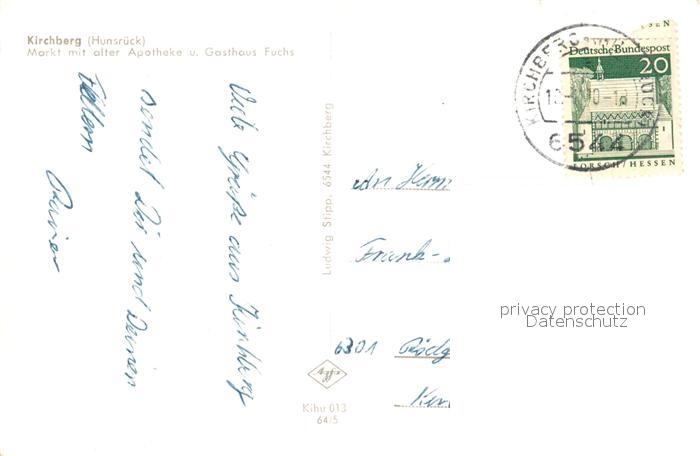 Kirchberg (Hunsrück)
Markt mit alter Apotheke u. Gasthaus Fuchs
Viele Grüße aus Kirchberg
sendet Dir und Deinen
Eltern
Rainer
Ludwig Stipp, 6544 Kirchberg
SEN
Deutsche Bundespost
20
LORSCH/HESSEN
KIRCHBERG
6544
Frank-
6301 Rödg
Kihu 013
64/5
privacy protection
Datenschutz